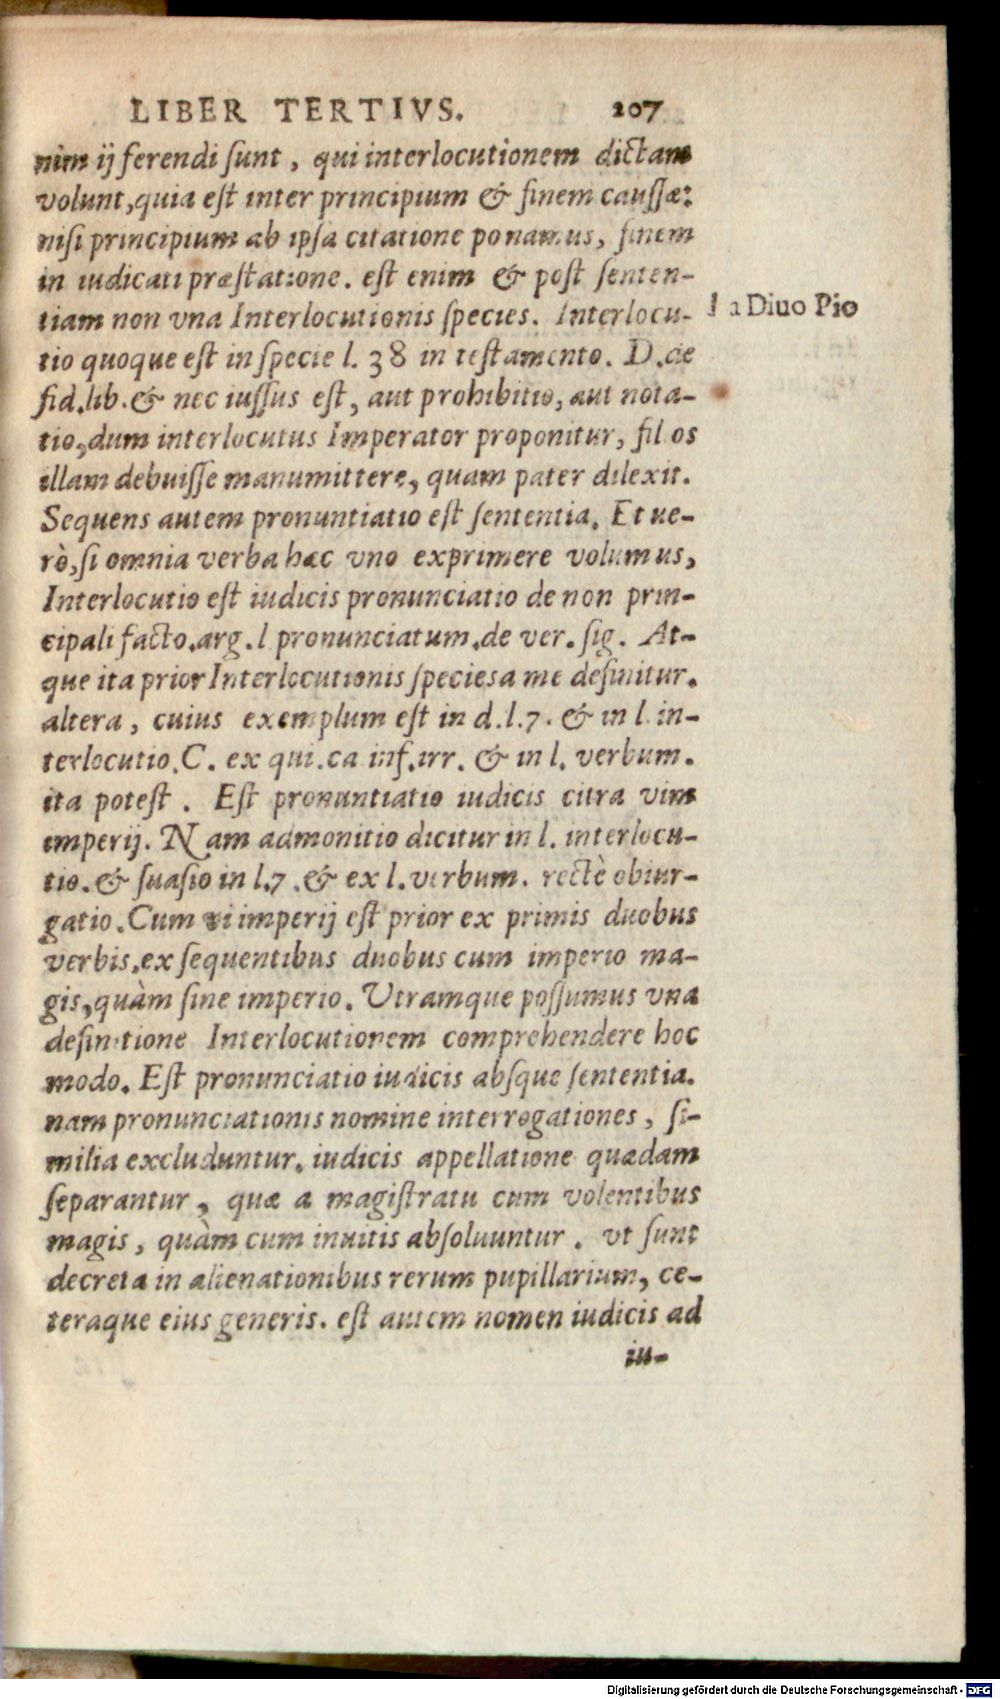 LIBER TERTIVS. 207
nim ij ferendi sunt, qui interlocutionem dictam
volunt, quia est inter principium & finem caussæ:
nisi principium ab ipsa citatione ponamus, finem
in iudicati præstatione. est enim & post senten-
tiam non vna Interlocutionis species. Interlocu-
l a Diuo Pio
tio quoque est in specie l. 38 in testamento. D. de
fid. lib. & nec iussus est, aut prohibitio, aut nota-
tio, dum interlocutus Imperator proponitur, filios
illam debuisse manumittere, quam pater dilexit.
Sequens autem pronuntiatio est sententia. Et ue-
rò, si omnia verba hæc vno exprimere volumus,
Interlocutio est iudicis pronunciatio de non prin-
cipali facto. arg. l pronunciatum. de ver. sig. At-
que ita prior Interlocutionis species a me definitur.
altera, cuius exemplum est in d. l. 7. & in l. in-
terlocutio. C. ex qui. ca inf. irr. & in l. verbum.
ita potest. Est pronuntiatio iudicis citra vim
imperij. Nam admonitio dicitur in l. interlocu-
tio. & suasio in l. 7. & ex l. verbum. rectè obiur-
gatio. Cum vi imperij est prior ex primis duobus
verbis. ex sequentibus duobus cum imperio ma-
gis, quàm sine imperio. Vtramque possumus vna
definitione Interlocutionem comprehendere hoc
modo. Est pronunciatio iudicis absque sententia.
nam pronunciationis nomine interrogationes, si-
milia excluduntur. iudicis appellatione quædam
separantur, quæ a magistratu cum volentibus
magis, quàm cum inuitis absoluuntur. vt sunt
decreta in alienationibus rerum pupillarium, ce-
teraque eius generis. est autem nomen iudicis ad
iu-
Digitalisierung gefördert durch die Deutsche Forschungsgemeinschaft - DFG